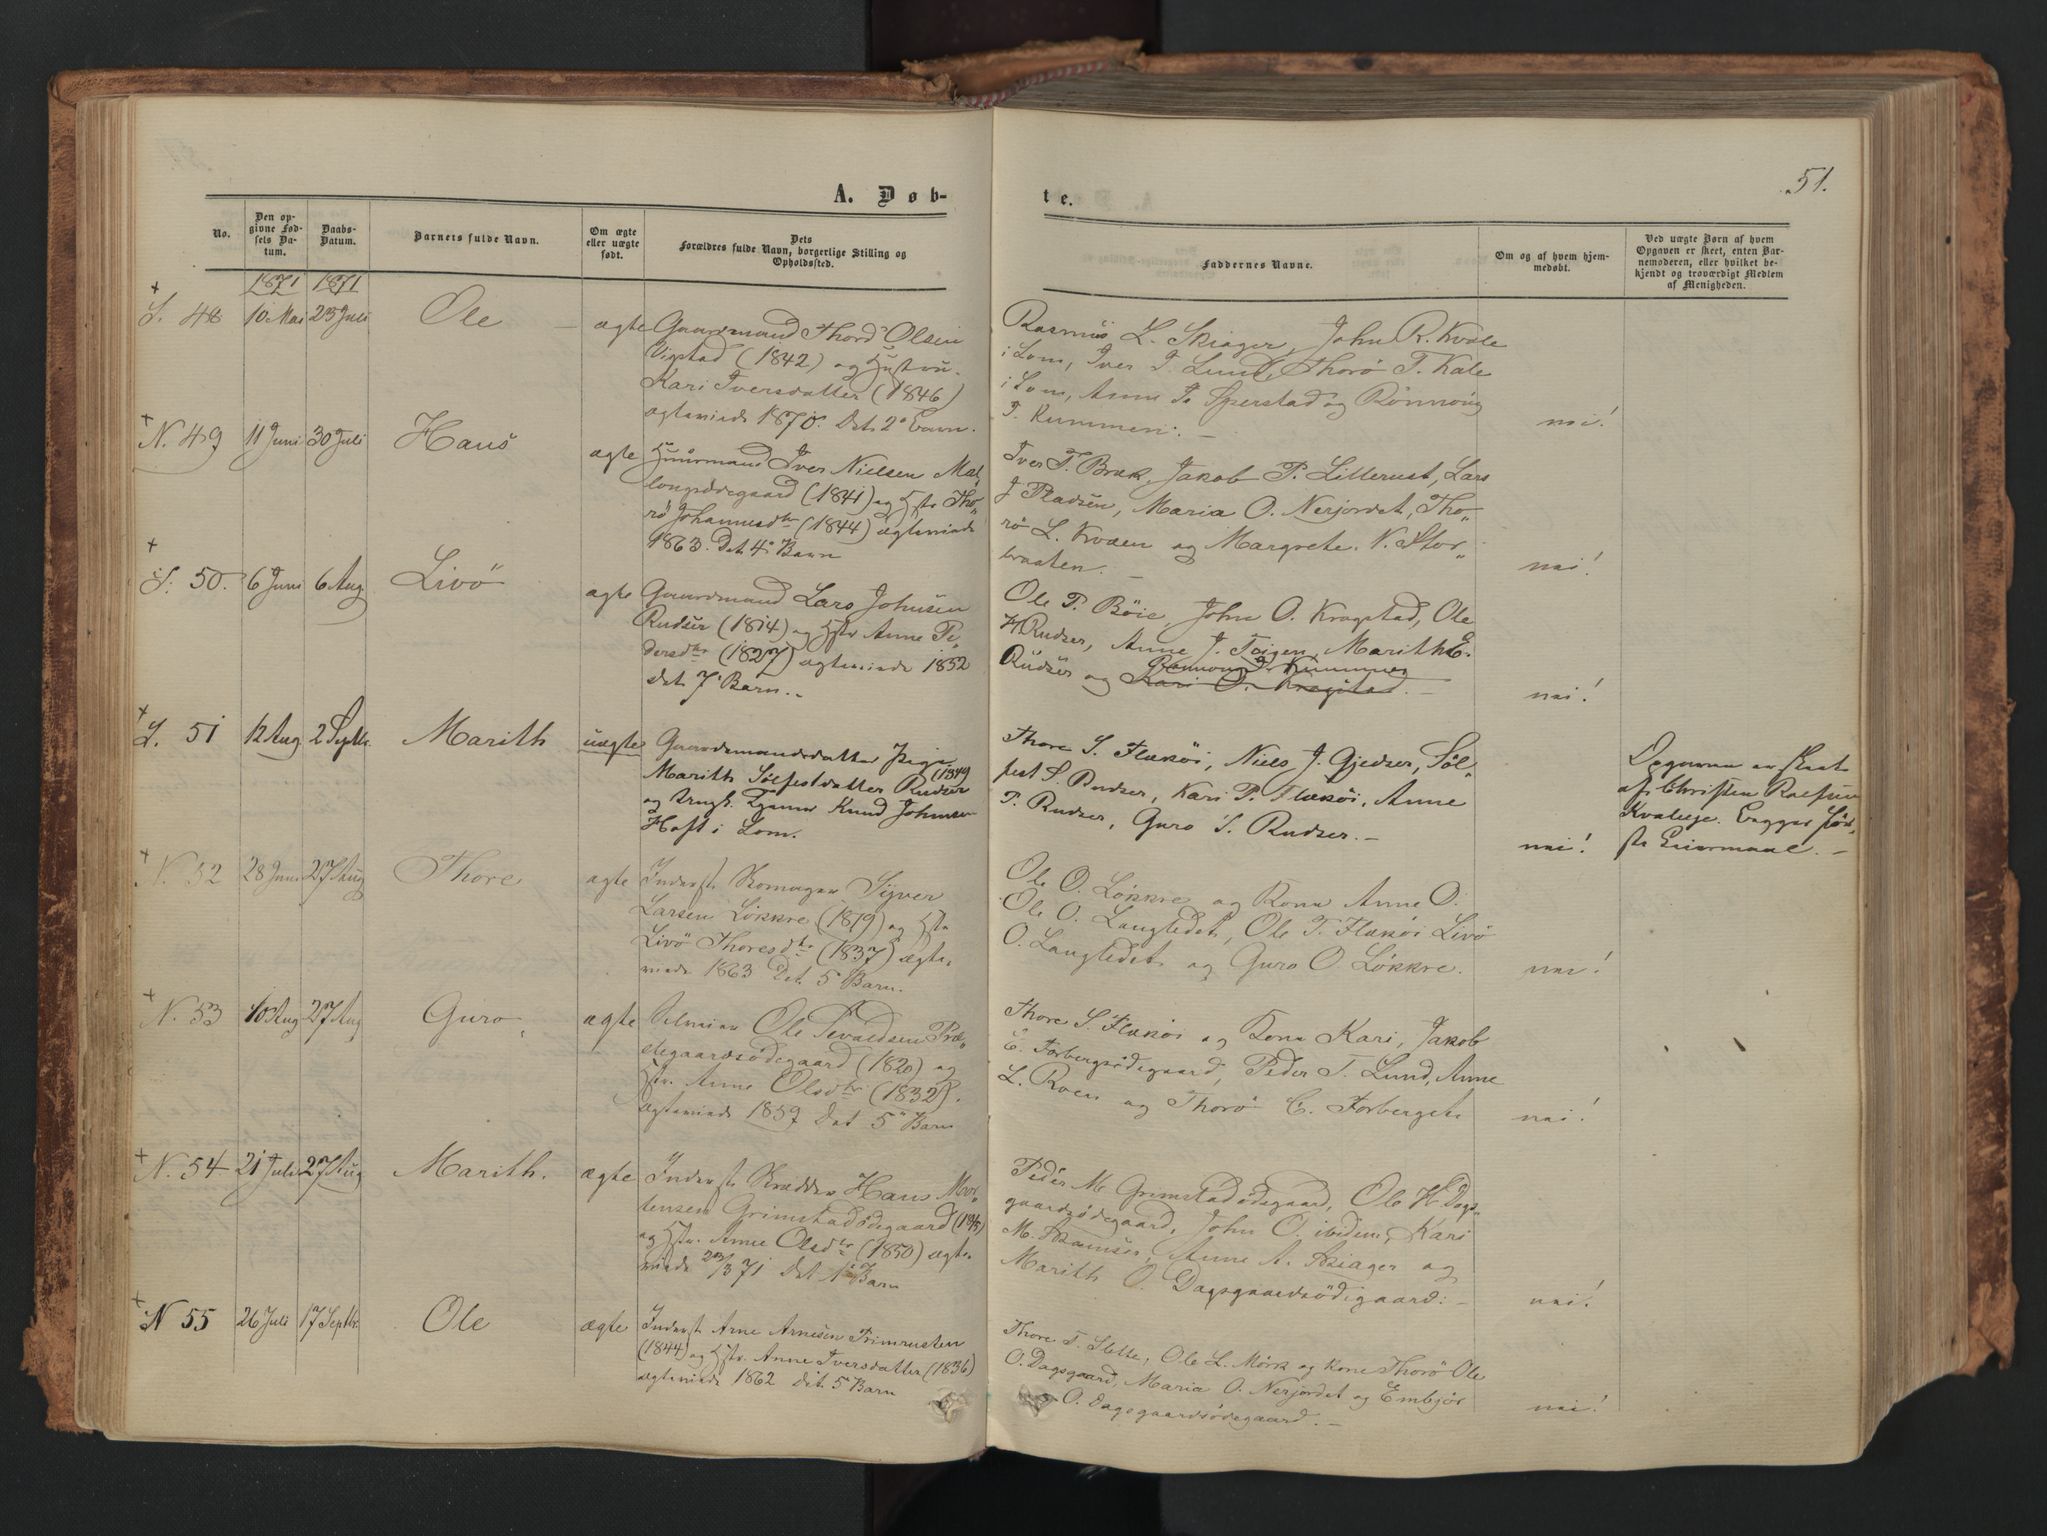 51.
A. Døb-
te.
No.
Den op-
givne Fød-
sels Da-
tum.
Daabs-
Datum.
Barnets fulde Navn.
Om ægte
eller uægte
født.
Dets
Forældres fulde Navn, borgerlige Stilling og
Opholdssted.
Faddernes Navne.
Om og af hvem hjem-
medøbt.
Ved uægte Børn af hvem
Opgaven er skeet, enten Bar-
nemoderen, eller hvilket be-
kjendt og troværdigt Medlem
af Menigheden.
1871 1871
S. 48 10 Mai 23 Juli Ole ægte Gaardmand Thord Olsen
Vigstad (1842) og Hustru
Kari Iversdatter (1846)
ægteviede 1870. Det 2' Barn.
Rasmus L. Skiager, John R. Kvale
i Lom, Iver T. Lund, Thorø T. Kale
i Lom, Anne Sperstad og Rønnoug
T. Kummen. – nei!
N. 49 11 Juni 30 Juli Hans ægte Huusmand Iver Nielsen
(1841) og Hstr Tho„
rø Johannesdtr (1844) ægteviede
1863. Det 4' Barn
Iver T. Bræk, Jakob P. Lillerust, Lars
J Pladsen, Maria O. Nerjordet, Tho„
rø L. Kvæen og Margrete N. Stor„
braaten. – nei!
S. 50. 6 Juni 6 Aug. Livø ægte Gaardmand Lars Johnsen
Rudser (1814) og Hstr Anne Pe„
dersdtr (1827) ægteviede 1852
det 7' Barn.
Ole P. Bøie, John O. Kragstad, Ole
H Rudser, Anne J. Toigen, Marith E.
Rønnoug J. Kummen
Rudser og Kari O. Kragstad. – nei!
S. 51 12 Aug 2 Septbr. Marith uægte Gaardmandsdatter Pige
Marith Sølfestdatter Rudser (1849
og Ungk. Knud Johnsen
Hoft i Lom.
Thore S. Flækøi, Niels J. Gjedser, Søl„
fest S. Rudser, Kari P. Flækøi, Anne
P. Rudser, Guro S. Rudser. – nei!
Opgaven er skeet
af Christen
Begges før„
ste Leiermaal. –
N. 52 28 Juni 27 Aug Thore ægte Inderst Skomager Syver
Larsen Løkkre (1819) og Hstr
Livø Thoresdtr (1837) ægte„
viede 1863 Det 5 Barn.
Ole O. Løkkre og Kona Anne O.
Ole O. Langledet, Ole T. Flækøi Livø
O. Langledet og Guro O Løkkre. nei!
N. 53 10 Aug 27 Aug Guro ægte Selveier Ole Sevaldsen Præ„
stegaardsødegaard (1820) og
Hstr. Anne Olsdtr (1832).
ægteviede 1859 Det 5' Barn
Thore S. Flækøi og Kona Kari, Jakob
E. Forbergsødegaard, Peder T. Lund, Anne
L. Roen og Thorø C. Forberget. nei!
N. 54 21 Juli 27 Aug Marith. ægte Inderst Skrædder Hans Mor„
tensen Grimstadødegaard
og Hstr. Anne Olsdtr (1850) ægte„
viede 23/3 71 Det 1' Barn
Peder M Grimstadødegaard, Ole H. Dags„
gaardsødegaard, John O. ibidem, Kari
M. Anne A. Skiager og
Marith O. Dagsgaardsødegaard. – nei!
N 55 26 Juli 17 Septbr. Ole ægte Inderst Arne Arnesen Frimrusten
(1844) og Hstr. Anne Iversdatter (1836)
ægteviede 1862 Det 5' Barn
Thore T. Slette, Ole L. Mørk og Kone Thorø Ole
O. Dagsgaard, Maria O. Nerjordet og Embjør
O. Dagsgaardsødegaard. – nei!